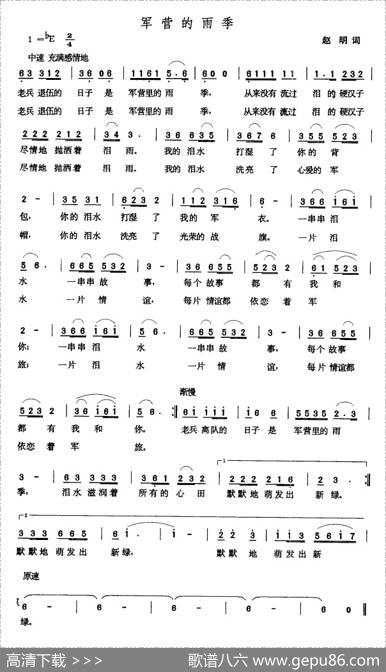 军营的雨季
1=♭E 2/4 赵 明 词
中速 充满感情地
63 312 | 36 06 | 1161 5·6 | 60 0 | 6111 11 | 3 3 232
老兵 退伍的 日子 是 军营里的 雨 季, 从来没有 流过 泪 的 硬汉子
老兵 退伍的 日子 是 军营里的 雨 季, 从来没有 流过 泪 的 硬汉子
222 212 | 34 3· | 36 635 | 3676 | 3 5 235
尽情地 抛洒着 泪 雨。 我的 泪水 打湿 了 你的 背
尽情地 抛洒着 泪 雨。 我的 泪水 洗亮 了 心爱的 军
2 - | 35 31 | 623 2 | 112 316 | 6 - | 366 i6i
包, 你的 泪水 打湿 了 我的 军 衣。 一串串 泪
帽, 你的 泪水 洗亮 了 光荣的 战 旗。 一片 泪
56· | 665 532 | 3 - | 366 665 | 5523 2 | 61 523
水 一串串 故 事, 每个 故事 都 有 我和
水 一片 情 谊, 每片 情谊都 依恋 着 军
2 - | 366 i6i | 56· | 665 532 | 3 - | 366 665
你; 一串串 泪 水 一串串 故 事, 每个 故事
旅; 一片 泪 水 一片 情 谊, 每片 情谊都
渐慢
523 2 | 36 i6i | 56· :‖ 6i iii | i6 6 | 5535 2·3
都 有 我 和 你。 老兵 离队的 日子 是 军营里的 雨
依恋 着 军 旅。
3 - | 63 333 | 361 232 | 222 216 | 23· :‖
季, 泪水 滋润着 所有的 心 田 默默地 萌发出 新绿。
333 665 | 6i· | i - | 22 3 | 335 5617
默默地 萌发出 新绿, 默默 地 萌发出 新
原速
6 - | 6 - | 6 - | 6 - | 6 - | 60 ‖
绿。
高清下载 >>> 歌谱八六 www.gepu86.com